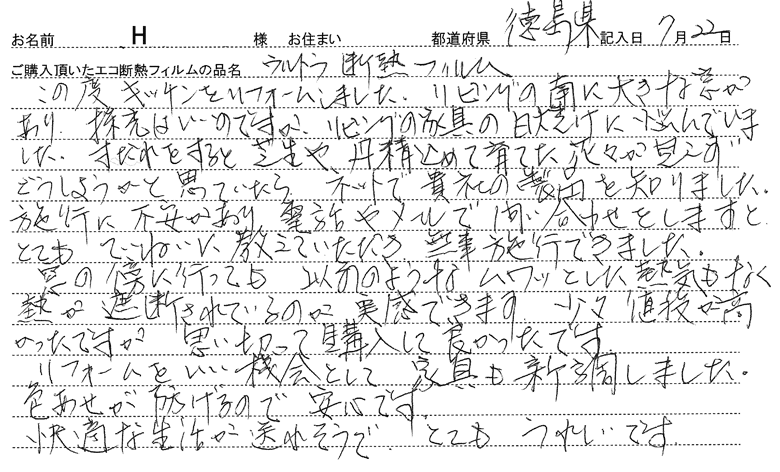 お名前 H 様 お住まい 都道府県 徳島県 記入日 7月22日
ご購入頂いたエコ断熱フィルムの品名 ウルトラ断熱フィルム
この度キッチンをリフォームしました。リビングの南に大きな窓が
あり、採光はいいのですが、リビングの家具の日焼けに悩んでいま
した。すだれをすると芝生や、丹精込めて育てた花々が見えず
どうしようかと思っていたら、ネットで貴社の製品を知りました。
施行に不安があり、電話やメールで問い合わせをしますと、
とてもていねいに教えていただき無事施行できました。
窓の傍に行っても以前のようなムワッとした熱気もなく
熱が遮断されているのが実感できます。少々値段が高
かったですが思い切って購入して良かったです。
リフォームをいい機会として家具も新調しました。
色あせが防げるので安心です。
快適な生活が送れそうで、とてもうれしいです。